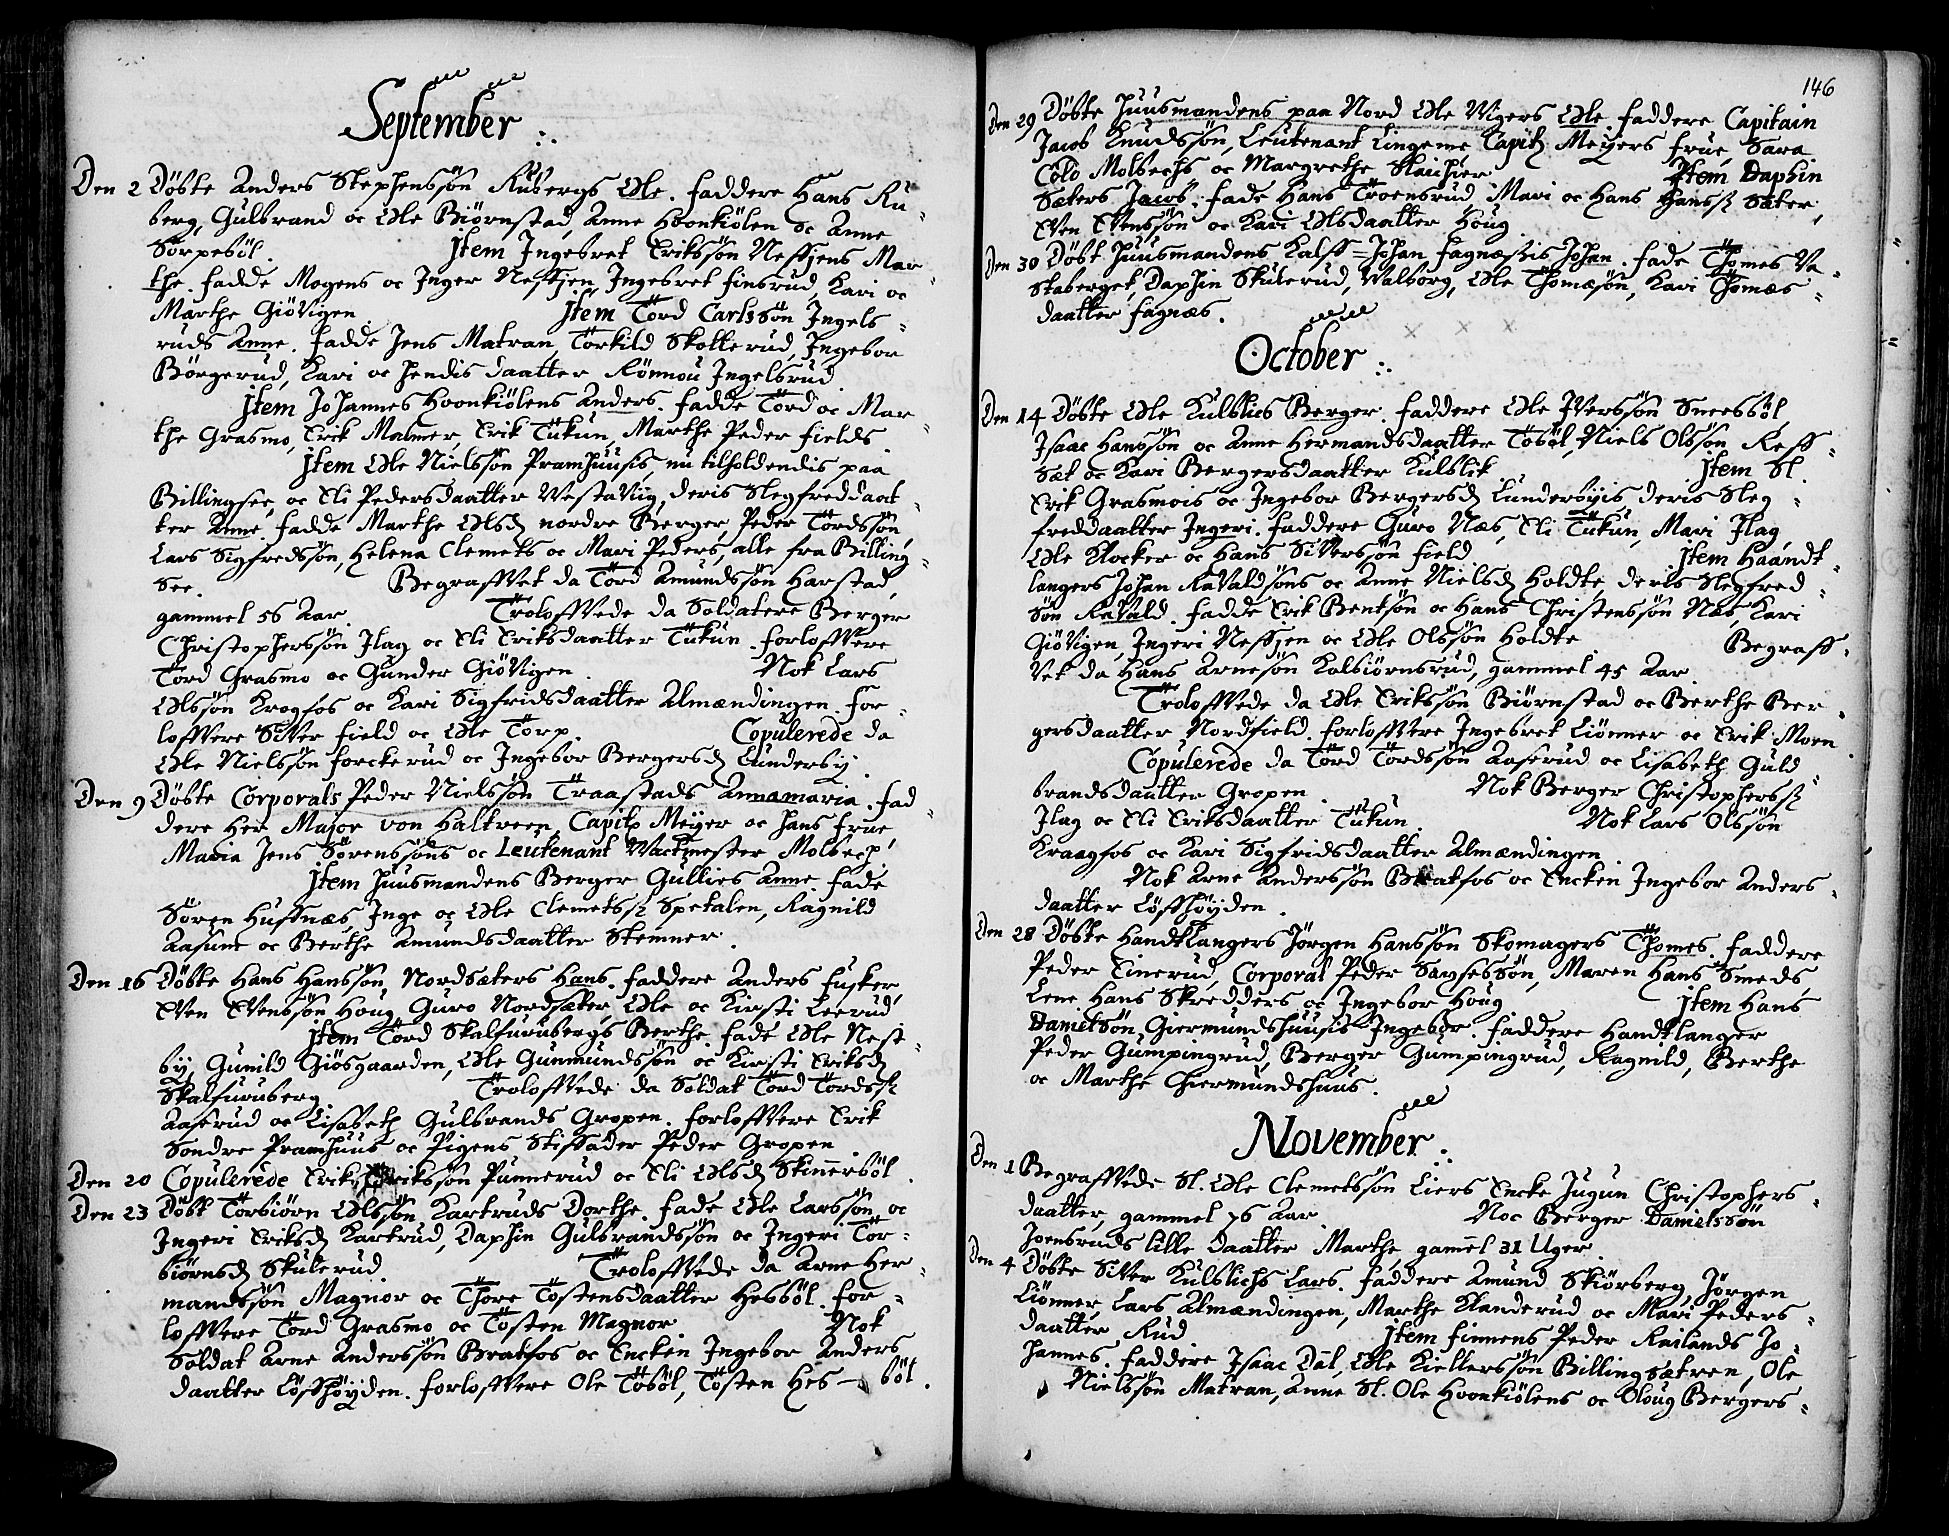 September
Den 2 Döbte Anders Stephenssön Rübergs Ole. faddere Hans Ru-
berg, Gulbrand oc Ole Biörnstad, Anne Hoonkiölen oc Anne
Sörpeböl. Jtem Ingebret Erikssön Nessjens Mar-
the. fadde Mogens oc Inger Nessjen, Ingebret finsrud, Kari oc
Marthe Giövigen. Jtem Tord Carlssön Ingels-
ruds Anne. fadde Jens Matran, Törkild Skotterud, Ingebor
Börgerud, Kari oc hendis daatter Rönnou Ingelsrud.
Jtem Johannes Hoonkiölens Anders. fadde Tord oc Mar-
the Grasmo, Erik Malmer, Erik Tükun, Marthe Peder fields.
Jtem Ole Nielssön Pramhuusis, nu tilholdendis paa
Billingsee, oc Eli Pedersdaatter Vestavüg, deris Slegfreddaat-
ter Anne. fadde Marthe Olsd nordre Berger, Peder Tordssön
Lars Sigfredssön, Helena Clemets oc Mari Peders, alle fra Billing-
see. Begraffvet da Tord Amundssön Harstad,
gammel 56 Aar. Troloffvede da Soldatere Berger
Christopherssön Jlag oc Eli Eriksdaatter Tükun. forloffvere
Tord Grasmo oc Gunder Giövigen. Nok Lars
Olssön Krogfos oc Kari Sigfridsdaatter Almændingen. for-
loffvere Siver field oc Ole Torp. Copulerede da
Ole Nielssön forckerud oc Ingebor Bergersd Lundersby.
Den 9 Döbte Corporals Peder Nielssön Traastads Annamaria. fad-
dere Her Major von Haltreen, Capitz Meÿer oc hans frue
Maria Jens Sörenssöns oc Leutenant Wachmester Molbech.
Jtem Huusmandens Berger Gullies Anne. fadde
Sören Hufsnæs, Inge oc Ole Clemetss Spetalen, Ragnild
Aasum oc Berthe Amundsdaatter Skinner.
Den 16 Döbte Hans Hanssön Nordsæters Hans. faddere Anders fusker,
Even Evenssön Houg, Guro Nordsæter, Ole oc Kirsti Leerud.
Jtem Tord Skalfurubergs Berthe. fade Ole Nest-
by, Gunild Giösgaarden, Ole Gunmundssön oc Kirsti Eriksd
Skalfuruberg. Troloffvede da Soldat Tord Tordss
Aaserud oc Lisabeth Gulbrands Gropen. forloffvere Erik
Söndre Pramhuus oc Pigens Stiffader Peder Gropen.
Den 20 Copulerede Erik Erikssön Punnerud oc Eli Olsd Skinnerböl.
Den 23 Döbt Torbiörn Olssön Kartruds Dorthe. fade Ole Larssön oc
Ingeri Eriksd Kartrud, Daphin Gulbrandssön oc Ingeri Tor-
biörnsd Skulerud. Troloffvede da Arne Her-
mandssön Magnor oc Thore Töstensdaatter Hesböl. for-
loffvere Tord Grasmo oc Tösten Magnor. Nok
Soldat Arne Anderssön Bratfos oc Encken Ingebor Anders
daatter Löffhöyden. forloffvere Ole Töböl, Tösten Hes-böl.
146
Den 29 Döbte Huusmandens paa Nord Ole Vigers Ole. faddere Capitain
Jacob Knudssön, Leutenant Lingeme, Capitz Meÿers frue, Sara
Colo Molbechs oc Margrethe Slaichier. Jtem Daphin
Sæters Jacob. fade Hans Troensrud, Mari oc Hans Hanss Sæter,
Even Evenssön oc Kari Olsdaatter Houg.
Den 30 Döbt Huusmandens Kalff-Johan fagnæssis Johan. fade Thomes Va-
staberget, Daphin Skulerud, Valborg, Ole Thomæsön, Kari Thomæs-
daatter fagnæs.
October
Den 14 Döbte Ole Kulblies Berger. faddere Ole Iverssön Sneesböl,
Isaac Hanssön oc Anne Hermandsdaatter Töböl, Niels Olssön Reff-
sæt oc Kari Bergersdaatter Kulblik. Jtem Sl.
Erik Grasmois oc Ingebor Bergersd Lundersbyis deris Sleg-
freddaatter Ingeri. faddere Guro Næs, Eli Tükun, Mari Jlag,
Ole Klocker oc Hans Siverssön field. Jtem Haandt-
langers Johan Ravaldsöns oc Anne Nielsd Holdte, deris Slegfred-
sön Ravald. fadde Erik Bentsön oc Hans Christenssön Næs, Kari
Giövigen, Ingeri Nessjen oc Ole Olssön Holdte. Begraff-
vet da Hans Arnesön Kolbiörnsrud, gammel 45 Aar.
Troloffvede da Ole Erikssön Biörnstad oc Berthe Ber-
gersdaatter Nordfield. forloffvere Ingebret Liönner oc Erik Moen.
Copulerede da Tord Tordssön Aaserud oc Lisabeth Guld-
brandsdaatter Gropen. Nok Berger Christopherss
Jlag oc Eli Eriksdaatter Tükun. Nok Lars Olssön
Kraagfos oc Kari Sigfridsdaatter Almændingen.
Nok Arne Anderssön Bratfos oc Encken Ingebor Anders-
daatter Löffhöyden.
Den 28 Döbte Handtlangers Jörgen Hanssön Skomagers Thomes. faddere
Peder Einerud, Corporal Peder Saxessön, Maren Hans Smeds,
Lene Hans Skredders oc Ingebor Houg. Jtem Hans
Danielsön Giermundshuusis Ingebor. faddere Handtlanger
Peder Gumpingrud, Berger Gumpingrud, Ragnild, Berthe
oc Marthe Giermundshuus.
November
Den 1 Begraffvede Sl. Ole Clemetssön Liers Encke Jugun Christophers-
daatter, gammel 76 Aar. Noc Berger Danielssön
Joensruds lille daatter Marthe, gamel 31 Uger.
Den 4 Döbte Siver Kulblichs Lars. faddere Amund Skiörberg, Jörgen
Liönner, Lars Almændingen, Marthe Klanderud oc Mari Peders-
daatter Rud. Jtem finnens Peder Railands Jo-
hannes. faddere Isaac Dal, Ole Kiellerssön Billingsætren, Ole
Nielssön Matran, Anne Sl. Ole Hoonkiölens oc Oloug Bergers-